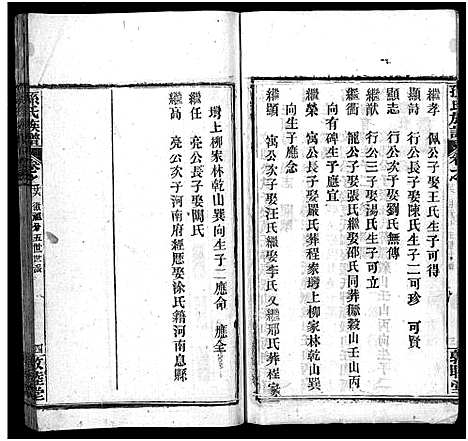 孫氏族譜
繼孝 佩公子娶王氏生子可得
顯詩 行公長子娶陳氏生子二可珍 可賢
顯志 行公次子娶劉氏無傳
繼猷 行公三子娶湯氏生子可立
繼衢 龍公子娶張氏繼娶邵氏同葬 穀山壬山丙
向有碑生子應宜
繼榮 寓公長子娶嚴氏葬程家塆上柳家林乾山巽
向生子應念
繼顯 寓公次子娶汪氏繼娶李氏又繼邢氏葬程家
塆上柳家林乾山巽向生子二應命 應全
繼任 亮公長子娶關氏
繼高 亮公次子河南府經歷娶涂氏籍河南息縣
孫氏族譜
五世世派
四 敦睦堂